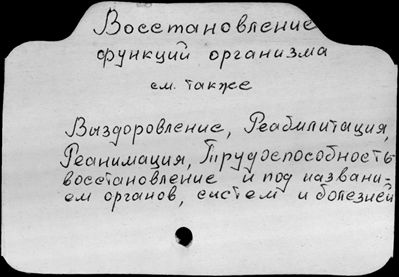 Восстановление
функций организма
см. также
Выздоровление, Реабилитация,
Реанимация, Трудоспособность
восстановление и под названи-
ем органов, систем и болезней